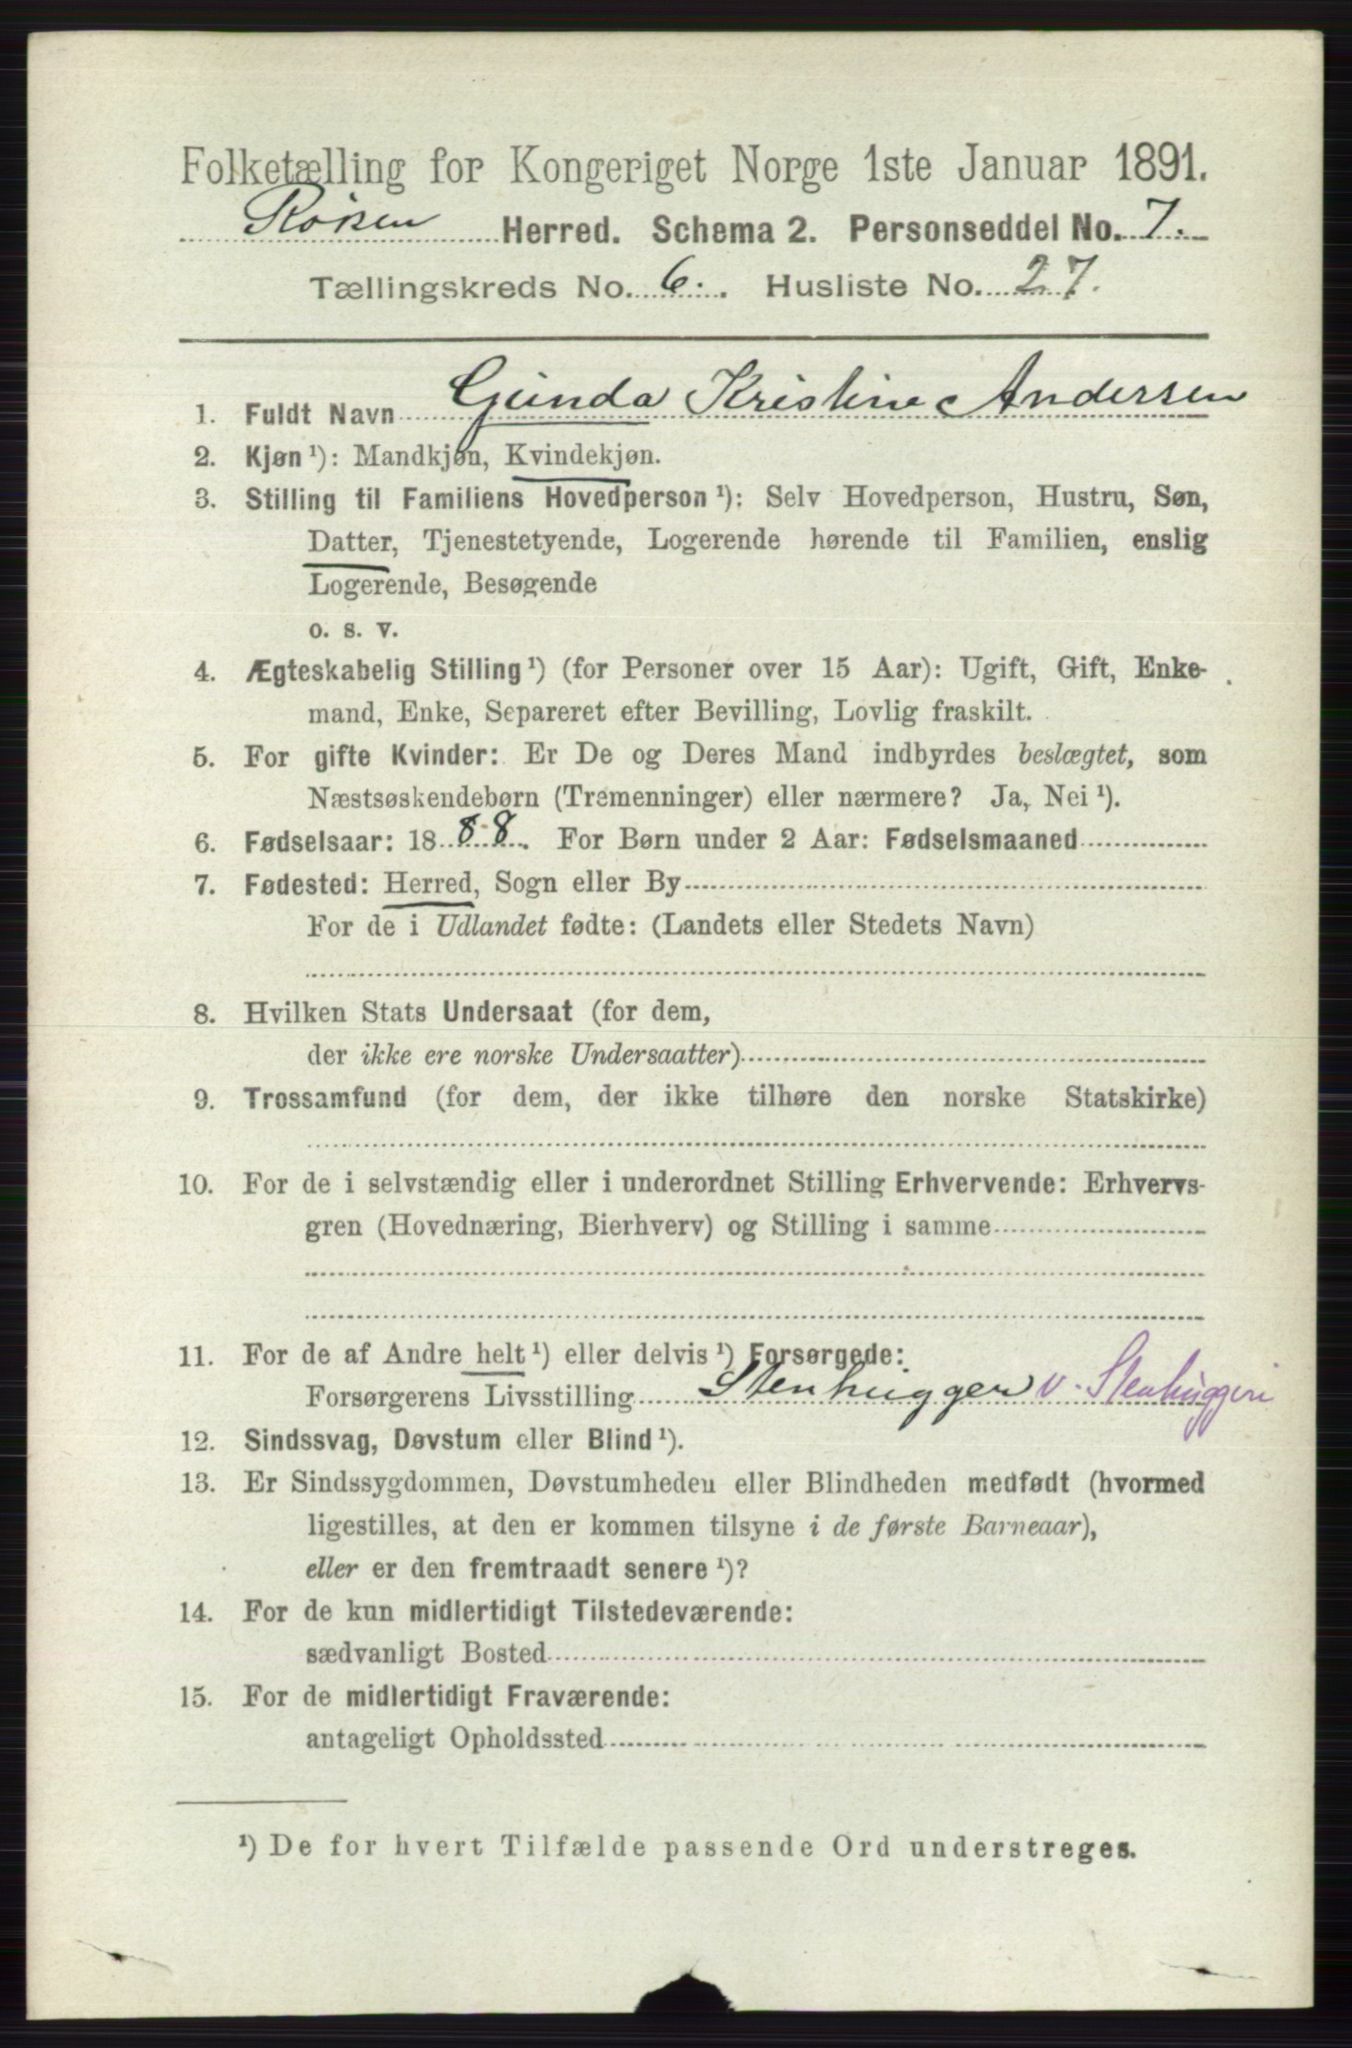 Folketælling for Kongeriget Norge 1ste Januar 1891.
Røken Herred. Schema 2. Personseddel No. 7.
Tællingskreds No. 6. Husliste No. 27.
1. Fuldt Navn Gunda Kristine Andersen
2. Kjøn ¹): Mandkjøn, Kvindekjøn.
3. Stilling til Familiens Hovedperson ¹): Selv Hovedperson, Hustru, Søn,
Datter, Tjenestetyende, Logerende hørende til Familien, enslig
Logerende, Besøgende
o. s. v.
4. Ægteskabelig Stilling ¹) (for Personer over 15 Aar): Ugift, Gift, Enke-
mand, Enke, Separeret efter Bevilling, Lovlig fraskilt.
5. For gifte Kvinder: Er De og Deres Mand indbyrdes beslægtet, som
Næstsøskendebørn (Tremenninger) eller nærmere? Ja, Nei ¹).
6. Fødselsaar: 1888. For Børn under 2 Aar: Fødselsmaaned
7. Fødested: Herred, Sogn eller By
For de i Udlandet fødte: (Landets eller Stedets Navn)
8. Hvilken Stats Undersaat (for dem,
der ikke ere norske Undersaatter)
9. Trossamfund (for dem, der ikke tilhøre den norske Statskirke)
10. For de i selvstændig eller i underordnet Stilling Erhvervende: Erhvervs-
gren (Hovednæring, Bierhverv) og Stilling i samme
11. For de af Andre helt ¹) eller delvis ¹) Forsørgede:
Forsørgerens Livsstilling Stenhugger v. Stenhuggeri
12. Sindssvag, Døvstum eller Blind ¹).
13. Er Sindssygdommen, Døvstumheden eller Blindheden medfødt (hvormed
ligestilles, at den er kommen tilsyne i de første Barneaar),
eller er den fremtraadt senere ¹)?
14. For de kun midlertidigt Tilstedeværende:
sædvanligt Bosted
15. For de midlertidigt Fraværende:
antageligt Opholdssted
¹) De for hvert Tilfælde passende Ord understreges.